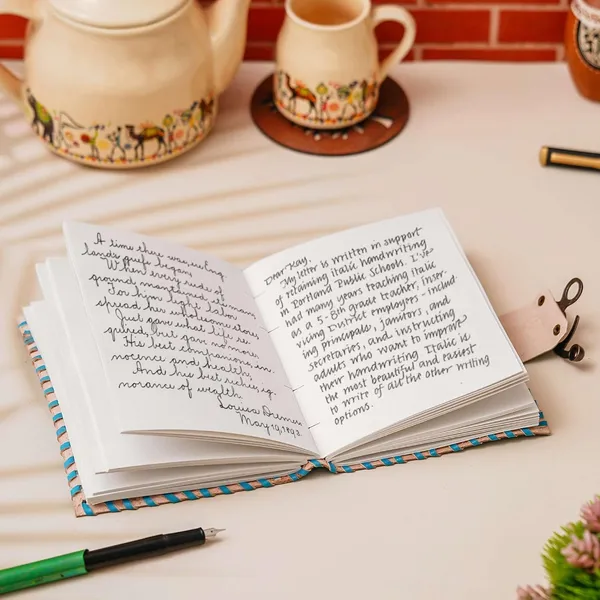 A time there was, ere Eng
lands griefs began.
When every rude of
ground maintained its man,
For him light labor
spread her wholesome store
Just gave what life re-
quired, but gave no more.
His best companions in-
nocence and health,
And his best riches, ig-
norance of wealth.
Louisa
May 19, 1893.
Dear Kay,
My letter is written in support
of retaining italic handwriting
in Portland Public Schools. I've
had many years teaching italic
as a 5-8th grade teacher, inser-
vicing District employers - includ
ing principals, janitors, and
secretaries, and instructing
adults who want to improve
their handwriting Italic is
the most beautiful and easiest
to write of all the other writing
options.